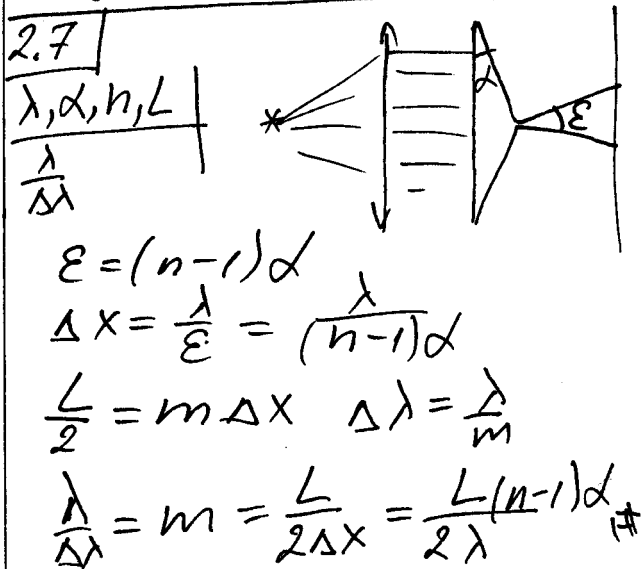 2.7
λ, α, n, L
λ/Δλ
α
ε
ε = (n-1)α
Δx = λ/ε = λ/((n-1)α)
L/2 = mΔx   Δλ = λ/m
λ/Δλ = m = L/(2Δx) = L(n-1)α/(2λ) #